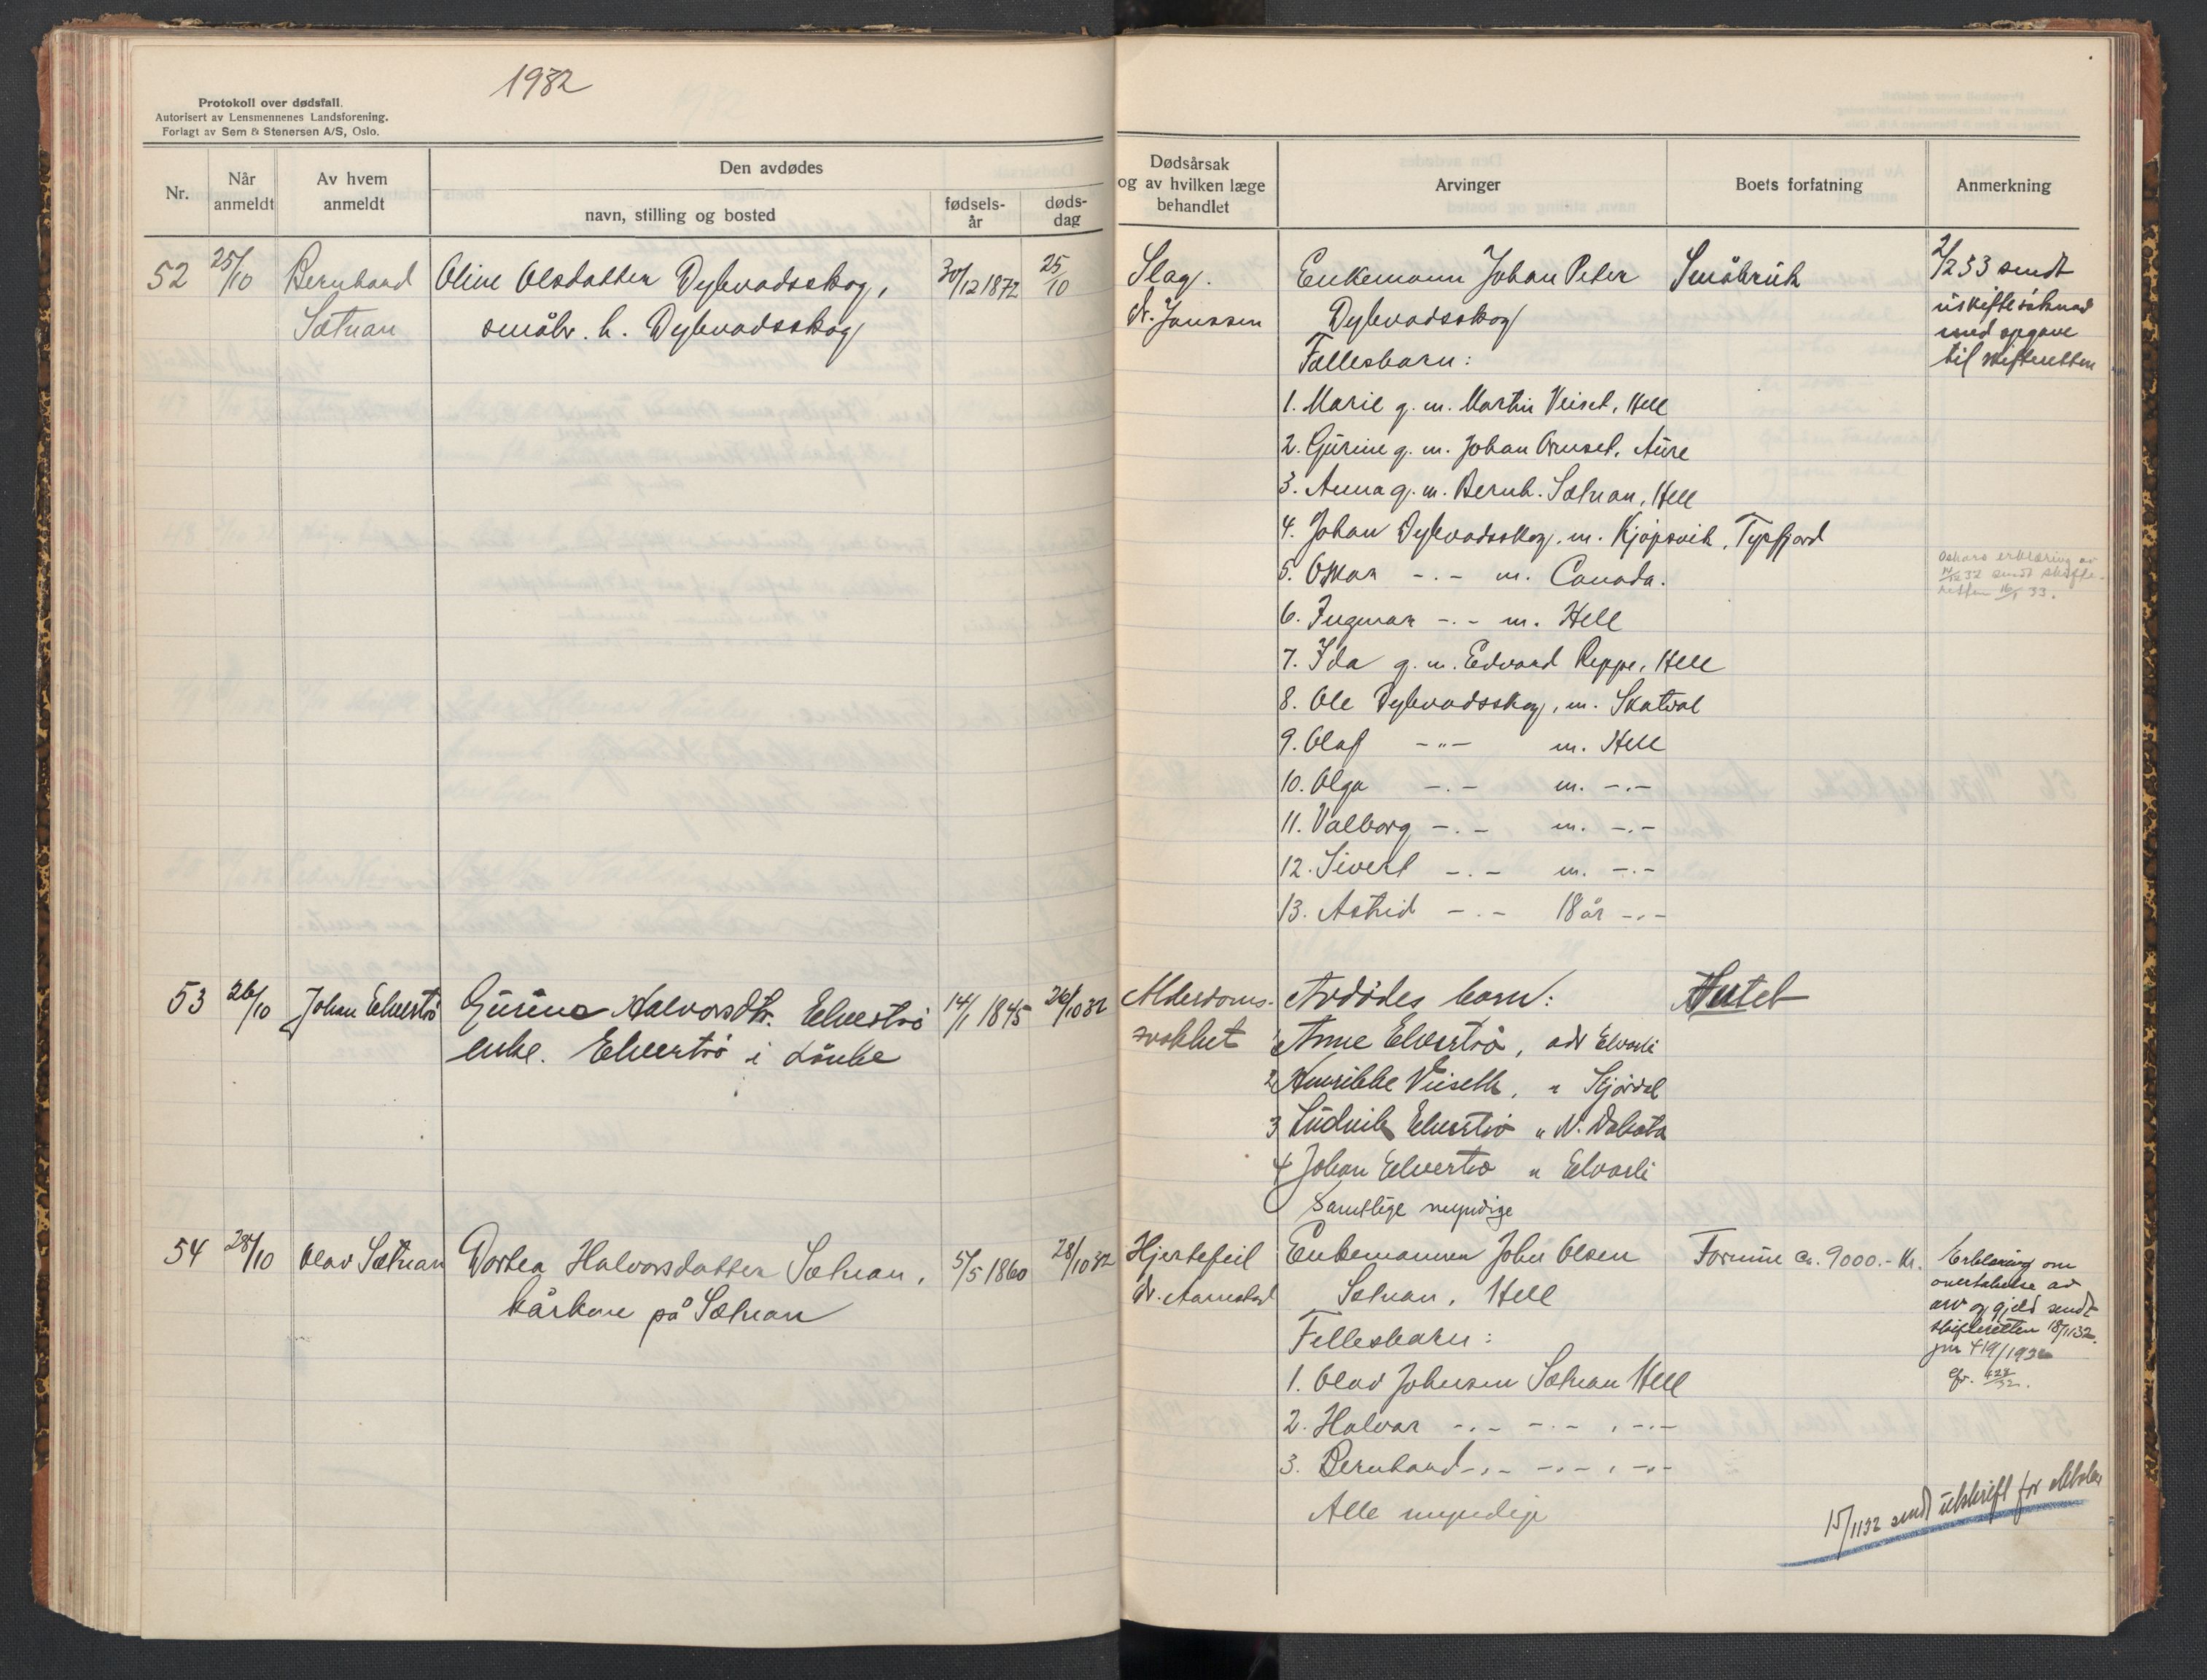 1932
Protokoll over dødsfall.
Autorisert av Lensmennenes Landsforening.
Forlagt av Sem & Stenersen A/S, Oslo.
Nr.
Når anmeldt
Av hvem anmeldt
Den avdødes
navn, stilling og bosted
fødsels-år
døds-dag
Dødsårsak og av hvilken læge behandlet
Arvinger
Boets forfatning
Anmerkning
52 25/10 Bernhard Oline Olsdatter Dybvadsskog, 30/12 1872 25/10
Sætnan småbr. h. Dybvadsskog
Slag.
dr. Janssen
Enkemann Johan Peter
Dybvadsskog
Fællesbarn:
1. Marie g. m. Martin Veiset, Hell
2. Gurine g. m. Johan Aruset, Aure
3. Anna g. m. Bernh. Sætnan, Hell
4. Johan Dybvadsskog, m. Kjøpsvik, Tysfjord
5. Oskar -.- m. Canada.
6. Ingmar -.- m. Hell
7. Ida g. m. Edvard Reppe, Hell
8. Ole Dybvadsskog, m. Skatval
9. Olaf -"- m. Hell
10. Olga -.- m. -.-
11. Valborg -.- m. -.-
12. Sivert -.- m. -.-
13. Astrid -.- 18 år -.-
Småbruk
2/2 33 sendt
uskiftesøknad
med opgave
til skifteretten
Oskars erklæring av
14/12 32 sendt skifte-
retten 16/1 33.
53 26/10 Johan Elvertrø Gurine Halvorsdtr. Elvertrø 14/1 1845 26/10 32
enke. Elvertrø i Lånke
Alderdoms-
svakhet
Avdødes barn:
1 Anne Elvertrø, adr Elvarli
2 Henrikke Viseth, " Stjørdal
3 Ludvik Elvertrø " N. Dakota
4 Johan Elvertrø " Elvarli
Samtlige myndige
Intet
54 28/10 Olav Sætnan Dortea Halvorsdatter Sætnan, 5/5 1860 28/10 32
kårkone på Sætnan
Hjertefeil
dr. Aarnestad
Enkemannen John Olsen
Sætnan, Hell
Fellesbarn:
1. Olav Johnsen Sætnan Hell
2. Halvar -.- -.- , -.-
3. Bernhard -.- -.- , -.-
Alle myndige
Formue ca. 9000.- kr.
Erklæring om
overtakelse av
arv og gjeld sendt
skifteretten 18/11 32.
jnr 419/1932
cfr. 428/32.
15/11 32 sendt utskrift for